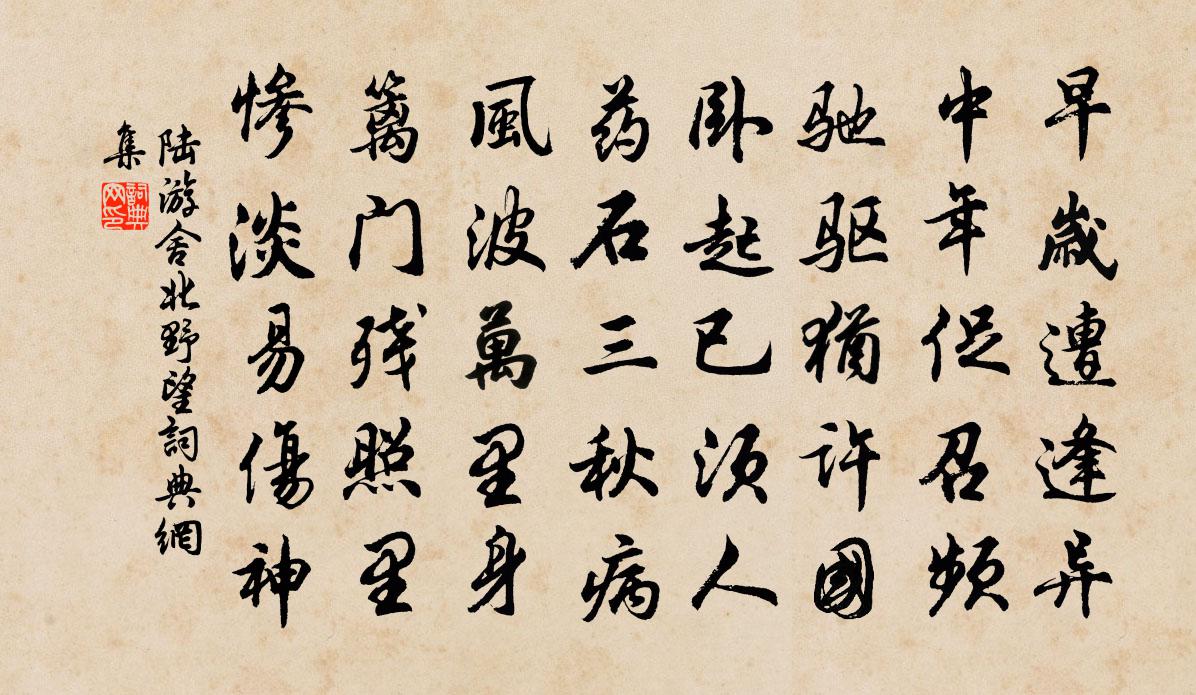 早歲遭逢异
中年促召频
驰驱猶许國
卧起已须人
药石三秋病
風波萬里身
篱门残照里
惨淡易傷神
陆游舍北野望詞典網
集
詞典网印